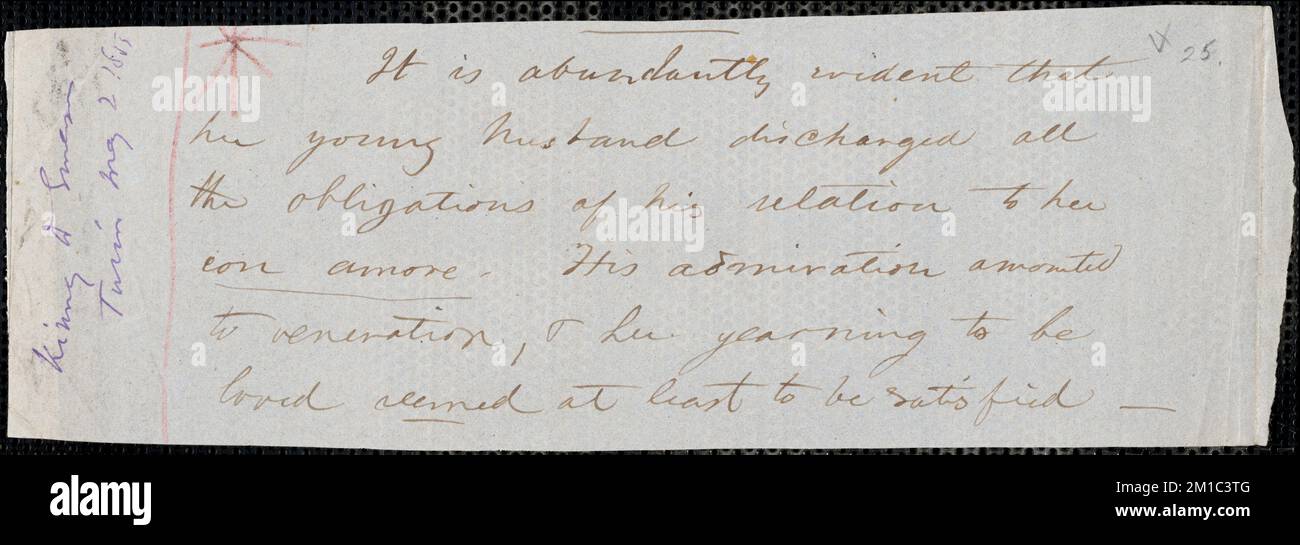 25.
It is abundantly evident that
her young husband discharged all
the obligations of his relation to her
con amore. His admiration amounted
to veneration, & her yearning to be
loved seemed at least to be satisfied —
Kinney to
Turin May 2
alamy
Image ID: 2M1C3TG
www.alamy.com